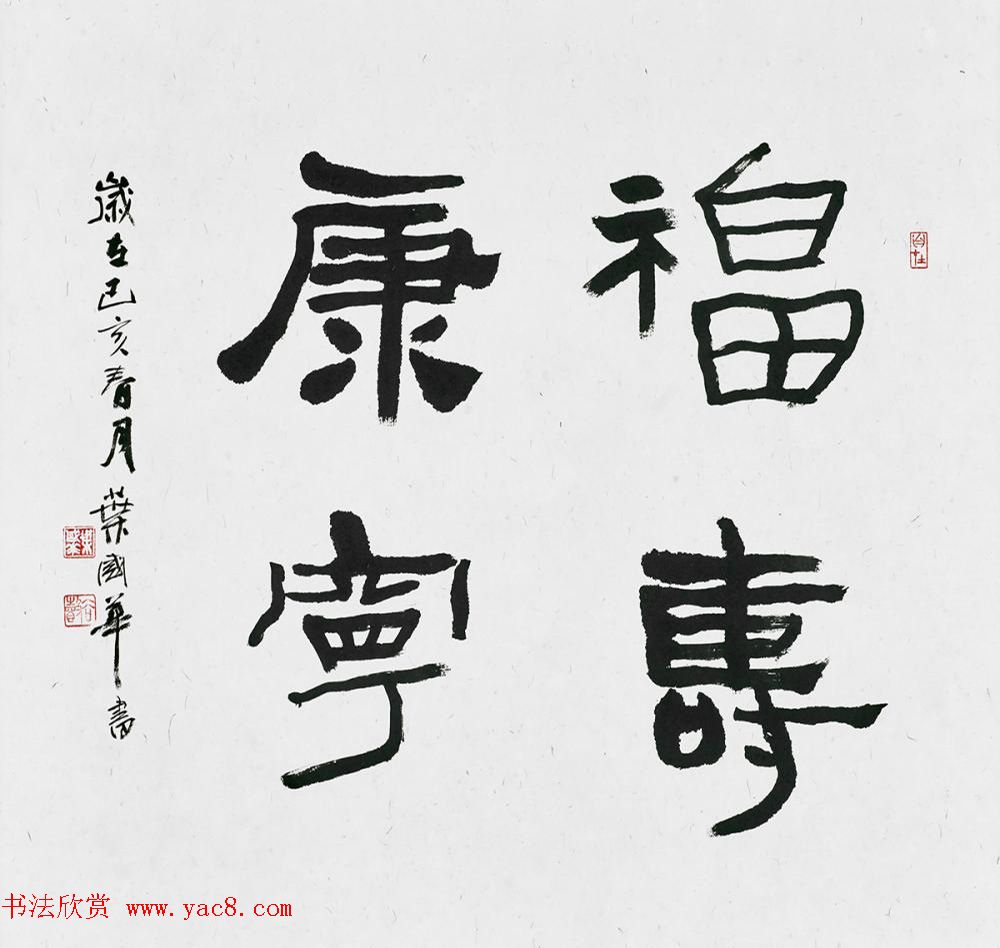 福壽
康寧
歲在己亥春月葉國華書
自在
书法欣赏 www.yac8.com